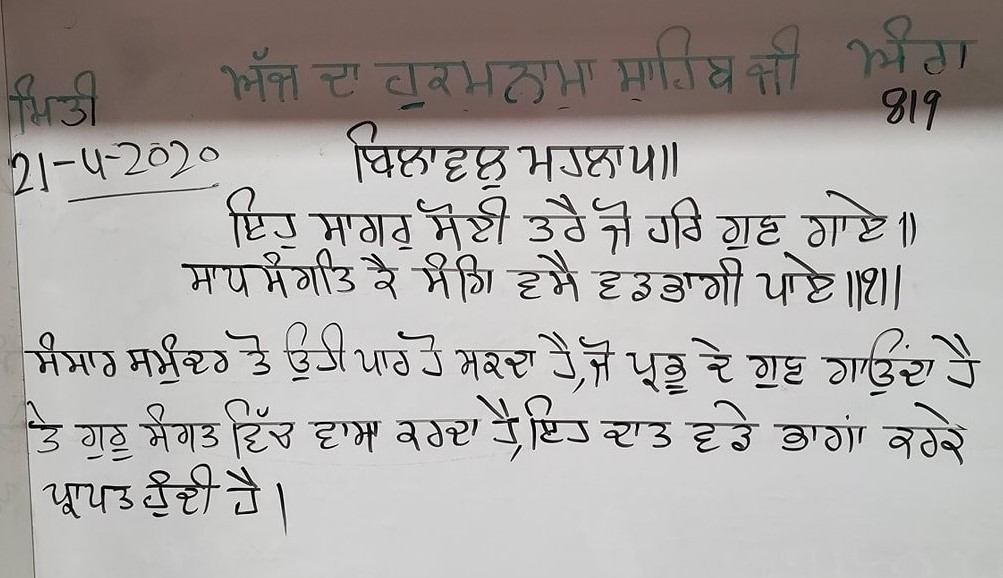 ਅੱਜ ਦਾ ਹੁਕਮਨਾਮਾ ਸਾਹਿਬ ਜੀ ਅੰਗ
ਮਿਤੀ 819
21-4-2020 ਬਿਲਾਵਲੁ ਮਹਲਾ ੫॥
ਇਹੁ ਸਾਗਰੁ ਸੋਈ ਤਰੈ ਜੋ ਹਰਿ ਗੁਣ ਗਾਏ॥
ਸਾਧਸੰਗਤਿ ਕੈ ਸੰਗਿ ਵਸੈ ਵਡਭਾਗੀ ਪਾਏ॥੧॥
ਸੰਸਾਰ ਸਮੁੰਦਰ ਤੋ ਉਹੀ ਪਾਰ ਹੋ ਸਕਦਾ ਹੈ,ਜੋ ਪ੍ਰਭੂ ਦੇ ਗੁਣ ਗਾਉਂਦਾ ਹੈ
ਤੇ ਗੁਰੂ ਸੰਗਤ ਵਿੱਚ ਵਾਸਾ ਕਰਦਾ ਹੈ,ਇਹ ਦਾਤ ਵਡੇ ਭਾਗਾਂ ਕਰਕੇ
ਪ੍ਰਾਪਤ ਹੁੰਦੀ ਹੈ।